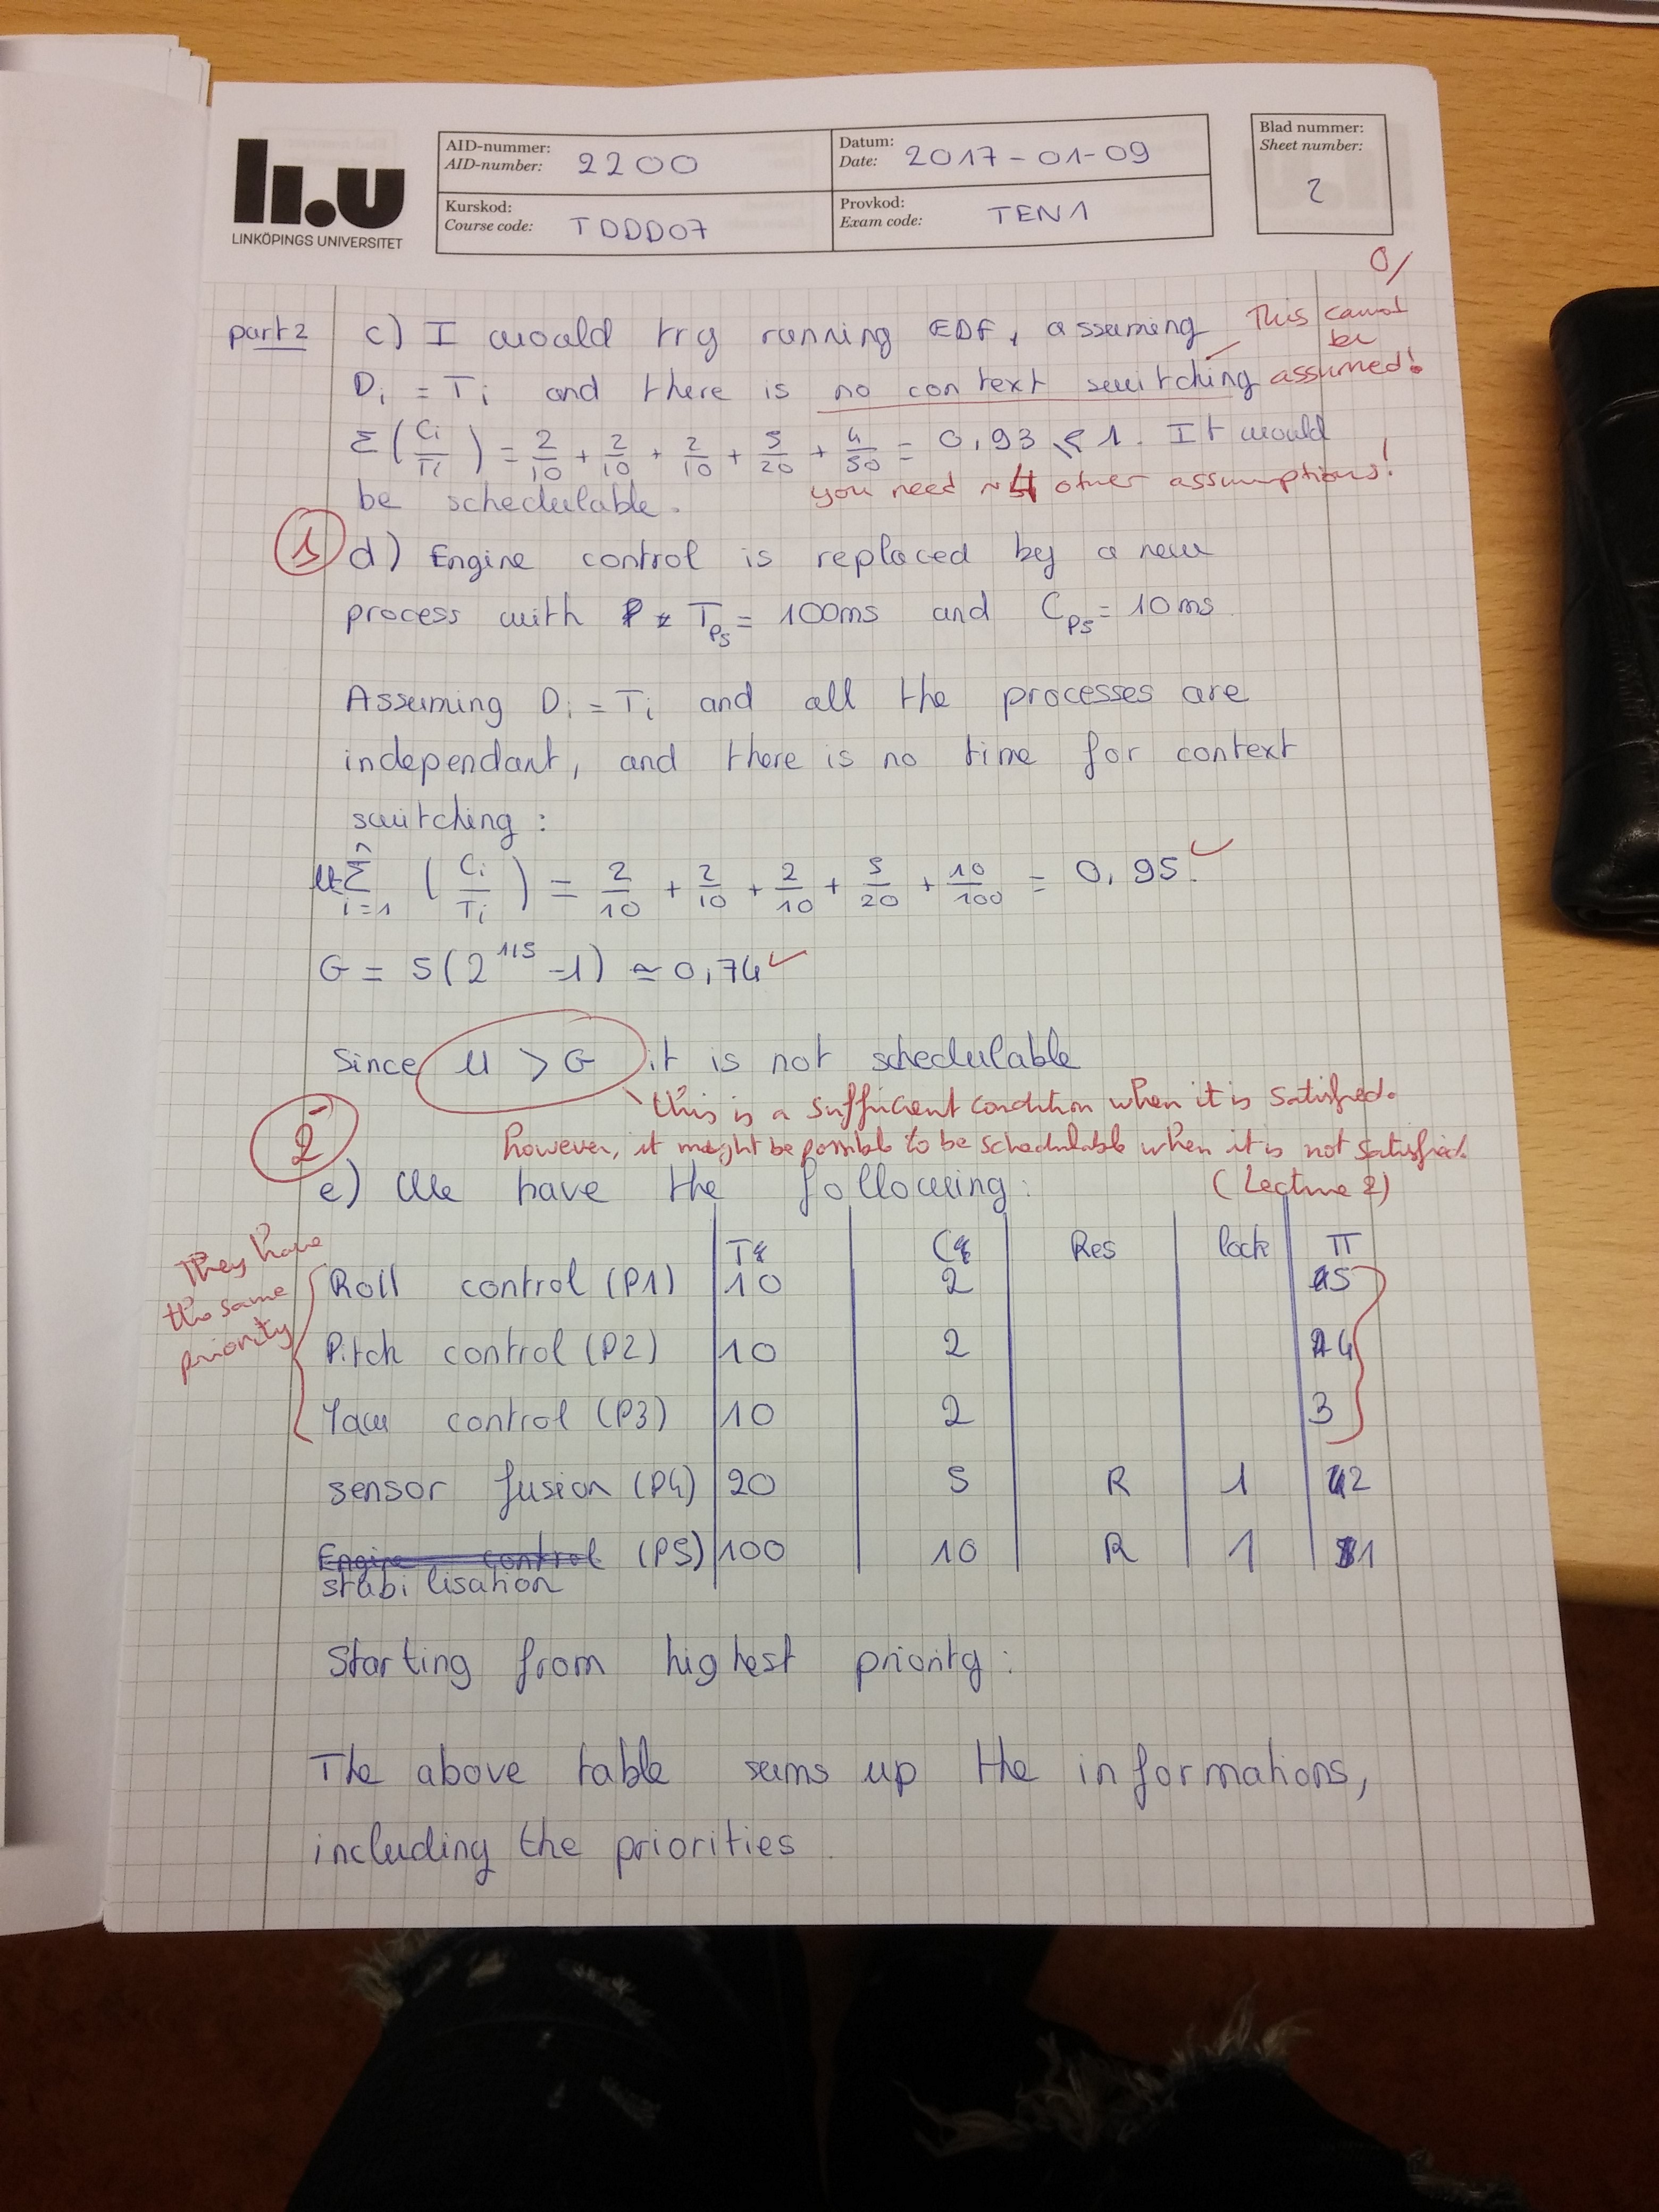 li.u
LINKÖPINGS UNIVERSITET
AID-nummer:
AID-number: 2200
Datum:
Date: 2017-01-09
Kurskod:
Course code: TDDD07
Provkod:
Exam code: TEN1
Blad nummer:
Sheet number:
2
0/
part 2 c) I would try running EDF, assuming
This cannot be assumed!
Di = Ti and there is no context switching
Σ(Ci/Ti) = 2/10 + 2/10 + 2/10 + 5/20 + 4/50 = 0,93 ≤ 1. It would
be schedulable.
you need other assumptions!
d) Engine control is replaced by a new
process with T_P5 = 100ms and C_P5 = 10ms.
Assuming Di = Ti and all the processes are
independant, and there is no time for context
switching:
n Σ i=1 (Ci/Ti) = 2/10 + 2/10 + 2/10 + 5/20 + 10/100 = 0,95. ✓
G = 5(2^1/5 -1) ≃ 0,74 ✓
Since U > G it is not schedulable
this is a sufficient condition when it is satisfied.
however, it might be possible to be schedulable when it is not satisfied.
(Lecture 2)
2
e) We have the following:
They have the same priority
Res lock π
Roll control (P1) 10 2 5
Pitch control (P2) 10 2 4
Yaw control (P3) 10 2 3
sensor fusion (P4) 20 5 R 1 2
Engine control (P5) 100 10 R 1 1
stabilisation
Starting from highest priority:
The above table sums up the informations,
including the priorities.